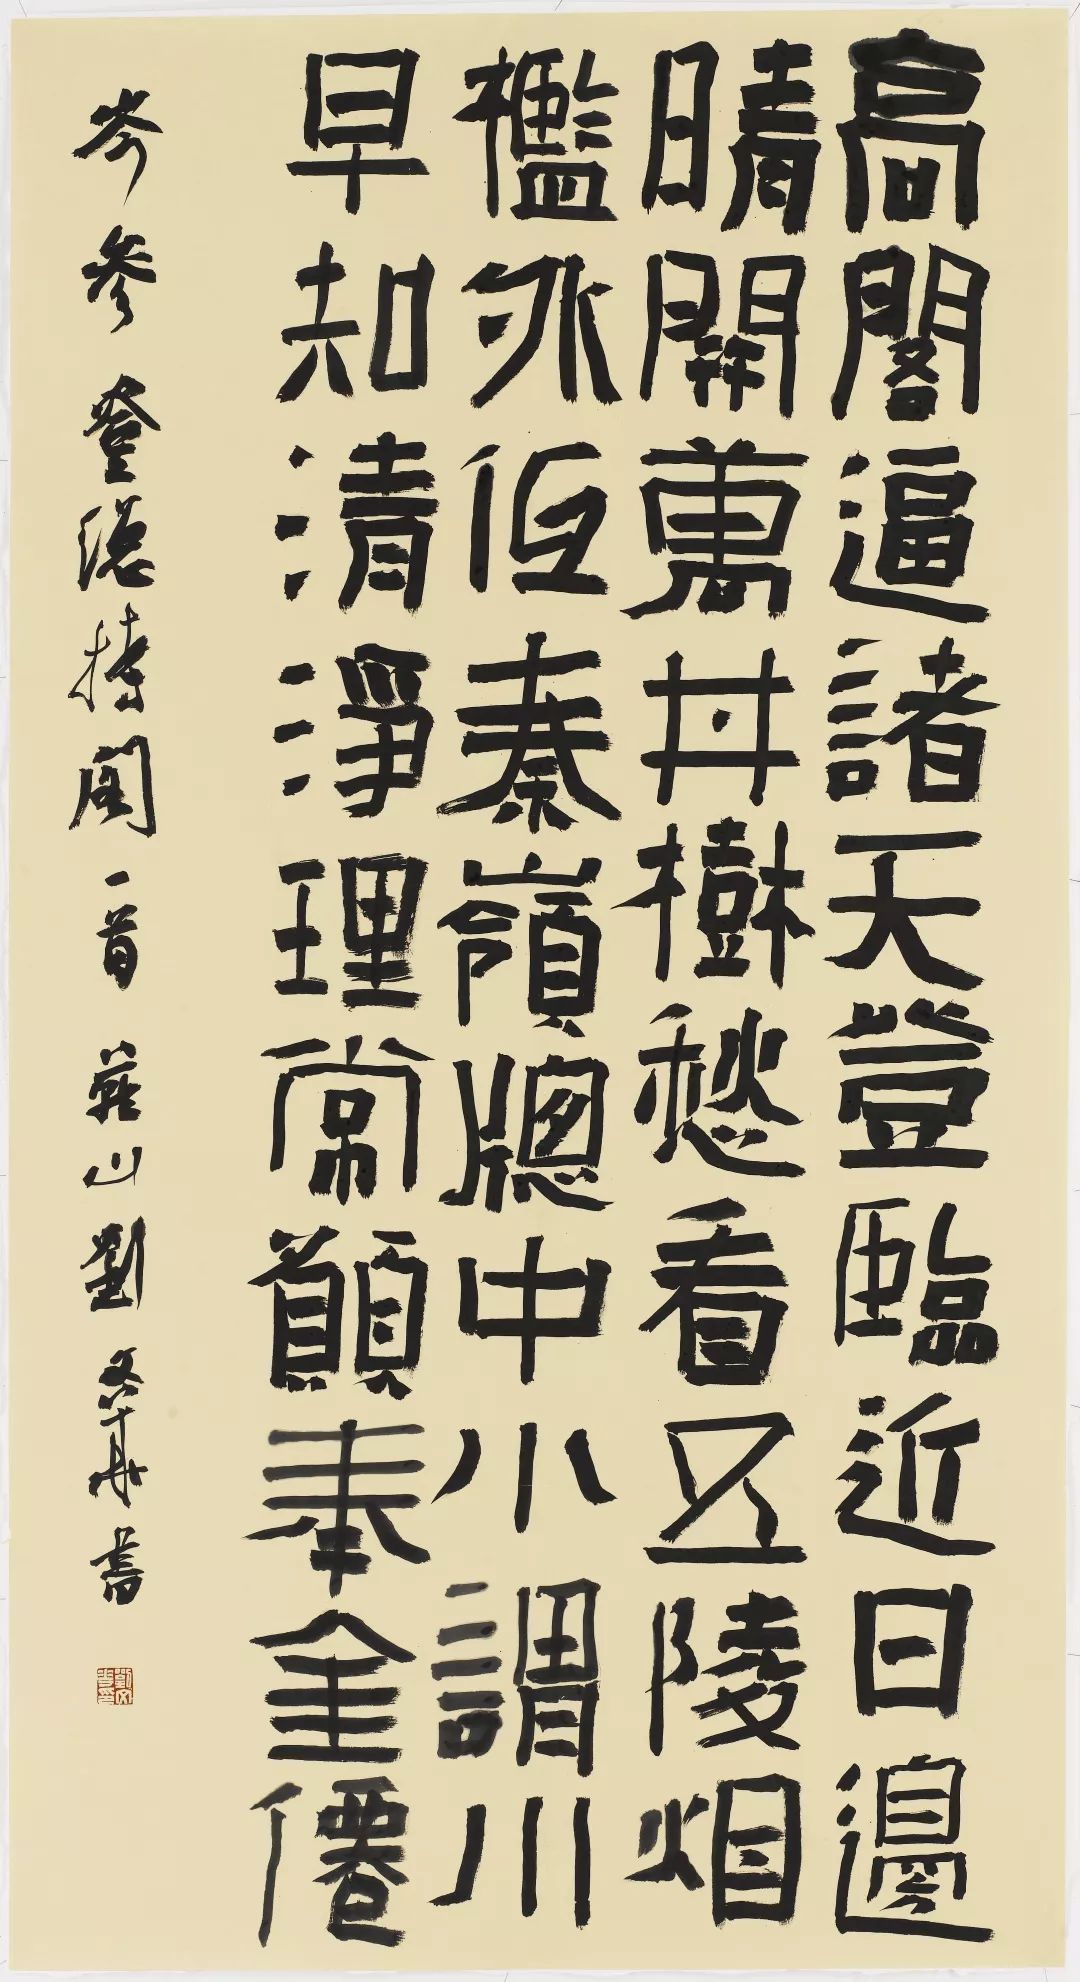 高閣逼諸天登臨近日邊
晴開萬井樹愁看五陵烟
檻外低秦嶺牕中小謂川
早知清淨理常願奉金僊
岑參登總持閣一首 山劉文華書